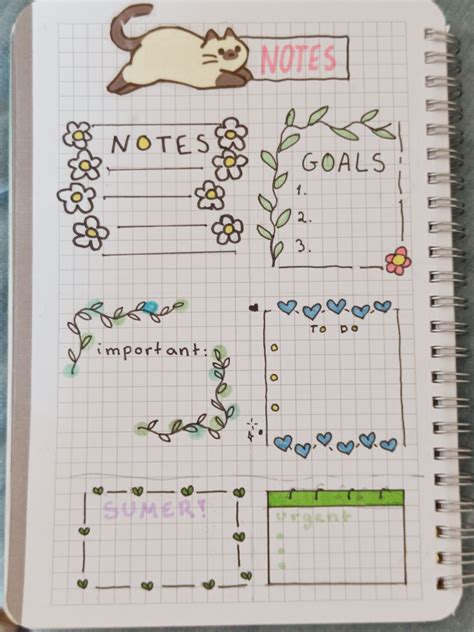 NOTES
NOTES
GOALS
1.
2.
3.
important:
TO DO
SUMER!
urgent